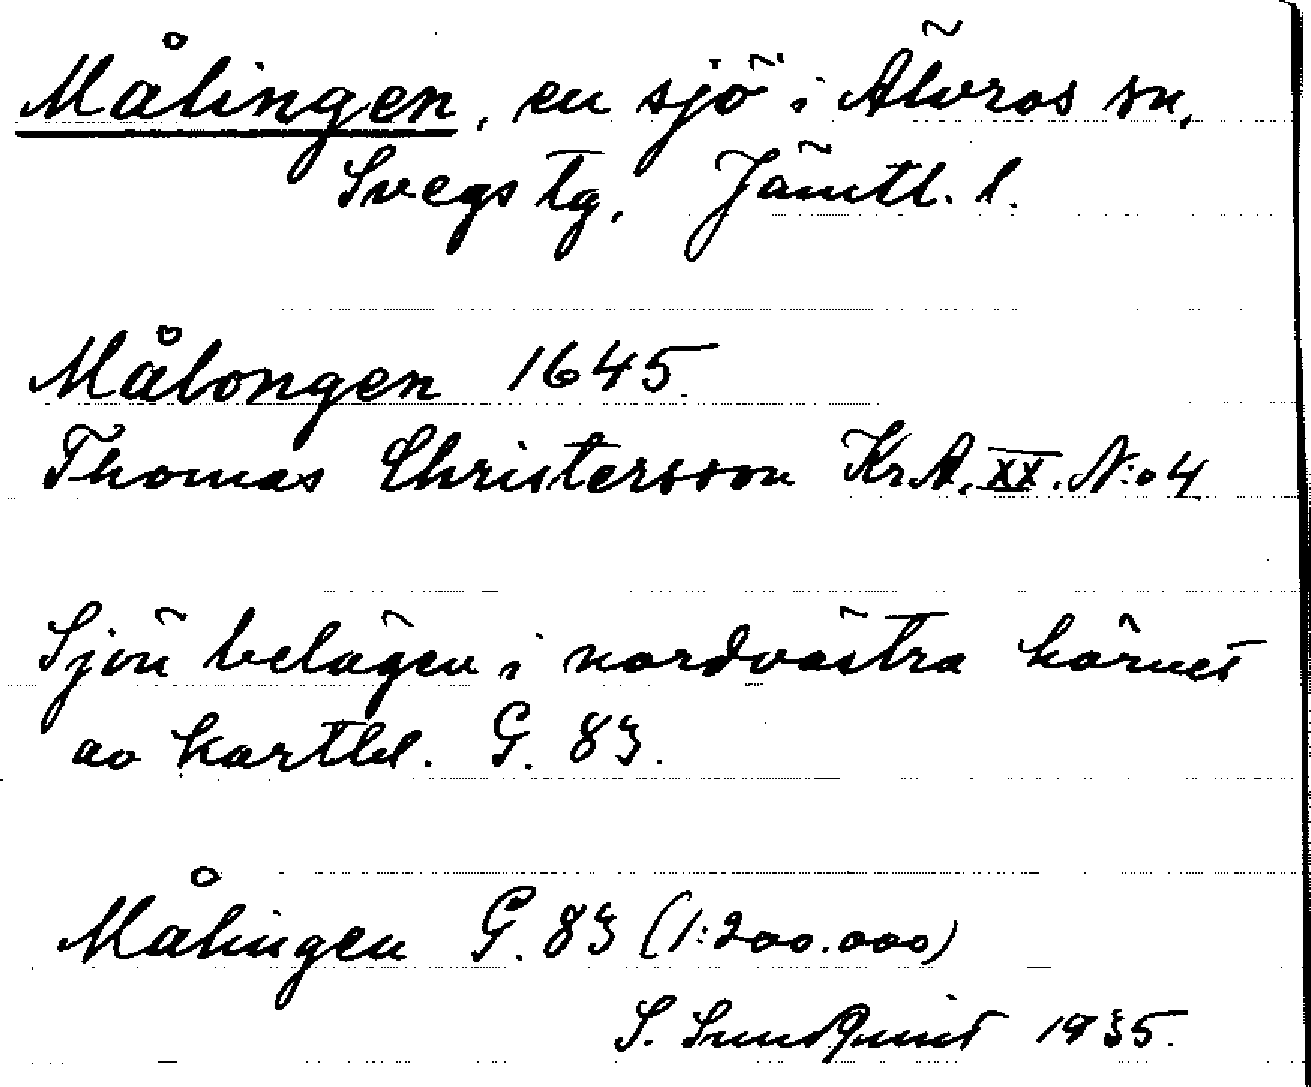 Målingen, en sjö i Älvros sn,
Svegs tg, Jämtl. l.
Målongen 1645.
Thomas Christersson Kr.A. XX. N:o 4
Sjön belägen i nordvästra hörnet
av kartbl. G. 83.
Målingen G. 83 (1:200.000)
S. Sundquist 1935.